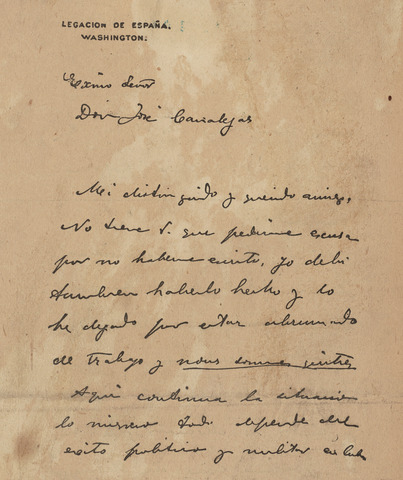 LEGACION DE ESPAÑA.
WASHINGTON.
Exmo Señor
Don José Canalejas
Mi distinguido y querido amigo,
No tiene V. que pedirme escusa
por no haberme escrito, yo debí
tambien haberlo hecho y lo
he dejado por estar abrumado
de trabajo y nous sommes quittes
Aqui continua la situacion
lo mismo todo depende del
exito politico y militar en Cuba